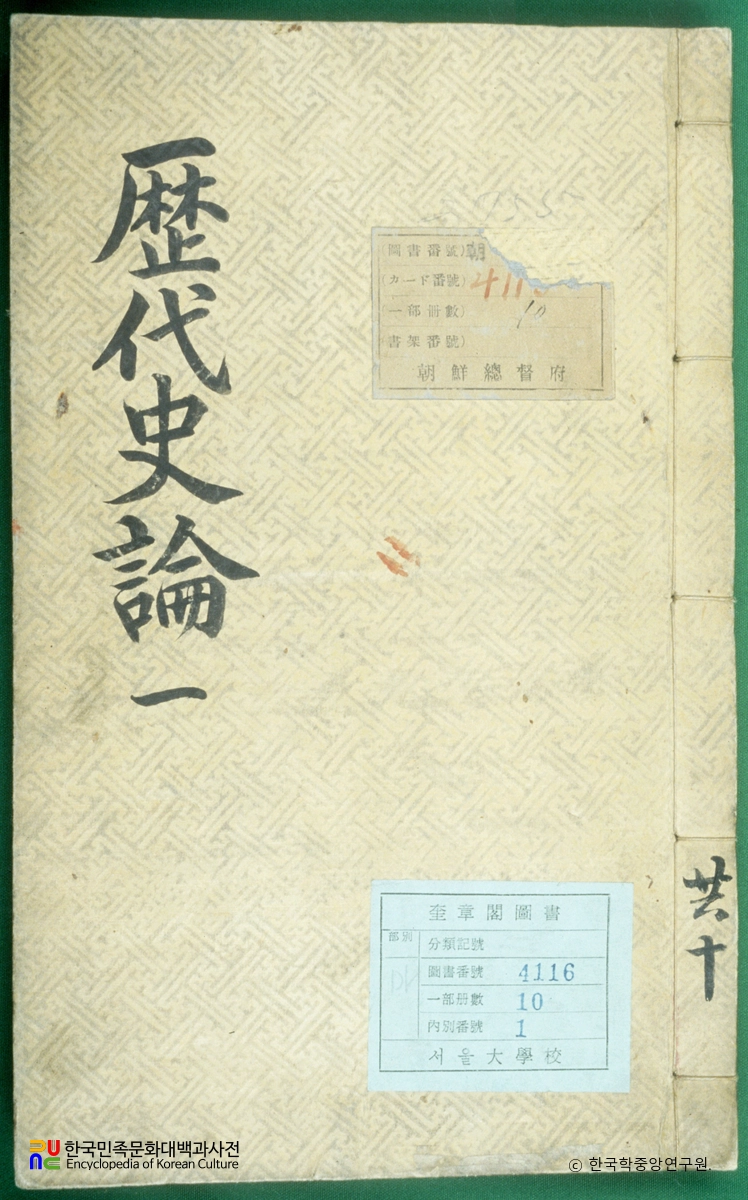 歷代史論 一
(圖書番號)朝
(カード番號)411
(一部冊數) 10
(書架番號)
朝鮮總督府
共十
奎章閣圖書
部別
分類記號
圖書番號 4116
一部册數 10
內別番號 1
서울大學校
한국민족문화대백과사전
Encyclopedia of Korean Culture
© 한국학중앙연구원